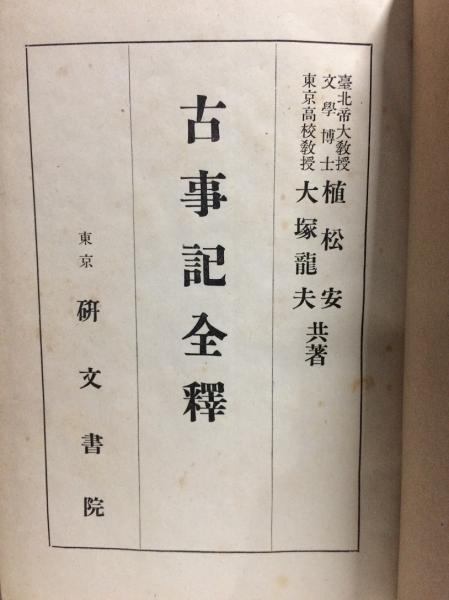 臺北帝大教授
文學博士
植松安
東京高校教授
大塚龍夫
共著
古事記全釋
東京
硏文書院